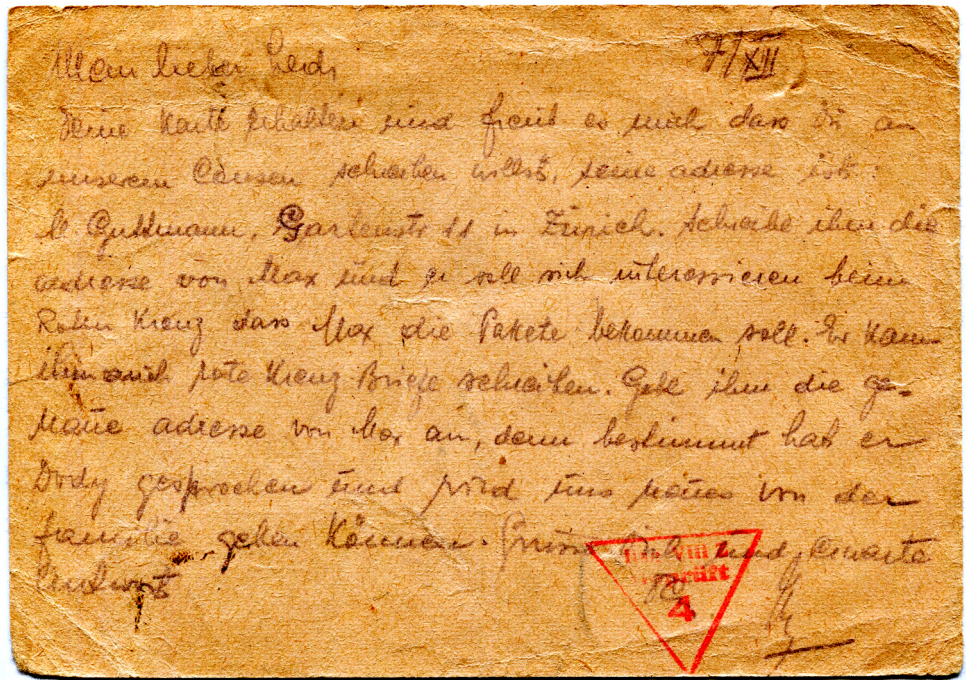 Mein lieber
7/XII
Deine Karte erhalten und freut es mich dass Du an
unserem Cousen schreiben willst, seine adresse ist:
Guttmann, Gartenstr 11 in Zürich. Schreibe ihm die
adresse von Max und er soll sich interessieren beim
Roten Kreuz dass Max die Pakete bekommen soll. Er kann
ihm auch rote Kreuz Briefe schreiben. Gebe ihm die ge-
naue adresse von Max an, denn bestimmt hat er
Dody gesprochen und wird uns neues von der
familie geben können. Dich und erwarte
4